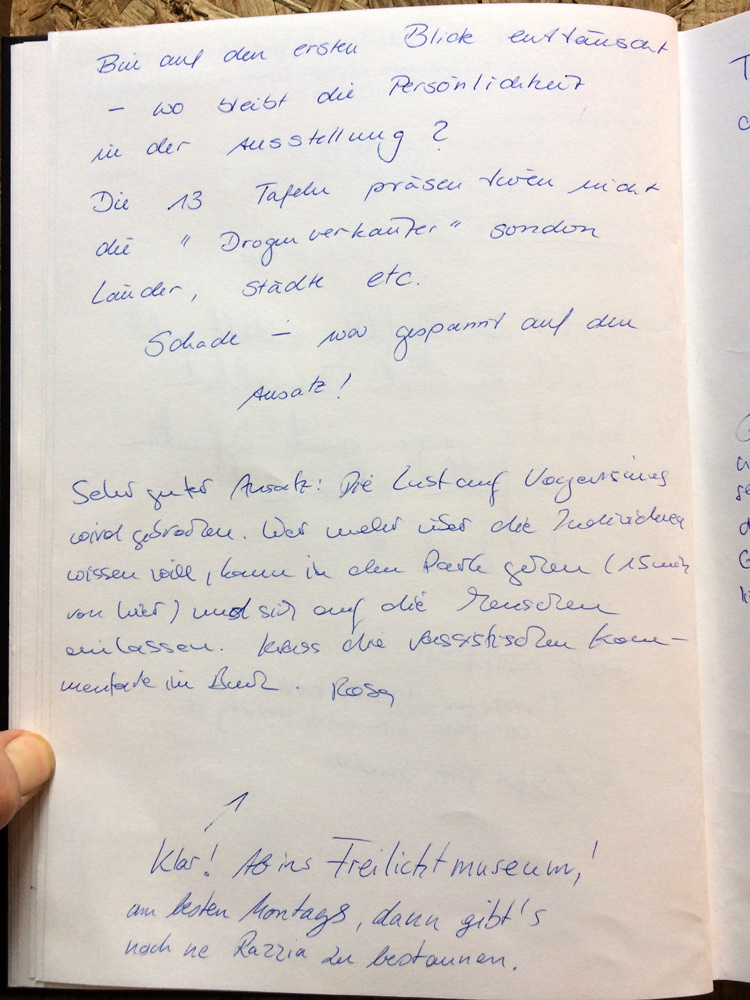 Bin auf den ersten Blick enttäuscht
– wo bleibt die Persönlichkeit
in der Ausstellung?
Die 13 Tafeln präsentieren nicht
die "Drogenverkäufer" sondern
Länder, Städte etc.
Schade – war gespannt auf den
Ansatz!
Sehr guter Ansatz! Die Lust auf Voyerismus
wird gebrochen. Wer mehr über die Individuen
wissen will, kann in den Park gehen (15 min
von hier) und sich auf die Menschen
einlassen. Krass die rassistischen Kom-
mentare im Buch. Rosa
Klar! Ab ins Freilichtmuseum,!
am besten Montags, dann gibt's
noch ne Razzia zu bestaunen.